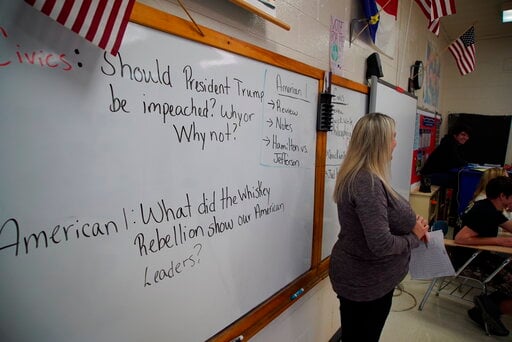 Civics: Should President Trump
be impeached? Why or
Why not?
American
→ Review
→ Notes
→ Hamilton vs.
Jefferson
American 1: What did the Whiskey
Rebellion show our American
Leaders?